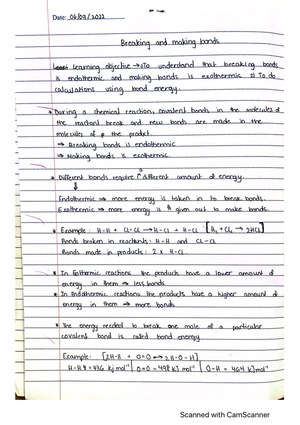 Date: 06/09/2022
Breaking and making bonds
Learning objective → ① To understand that breaking bonds
is endothermic and making bonds is exothermic ② To do
calculations using bond energy.
* During a chemical reaction, covalent bonds in the molecules of
the reactant break and new bonds are made in the
molecules of the product.
⇒ Breaking bonds is endothermic
⇒ Making bonds is exothermic.
* Different bonds require a different amount of energy.
↓
Endothermic ⇒ more energy is taken in to break bonds.
Exothermic ⇒ more energy is given out to make bonds.
* Example : H-H + Cl-Cl → H-Cl + H-Cl [H₂ + Cl₂ → 2HCl]
Bonds broken in reactants : H-H and Cl-Cl
Bonds made in products : 2 x H-Cl
* In Exothermic reactions the products have a lower amount of
energy in them ⇒ less bonds
* In Endothermic reactions the products have a higher amount of
energy in them ⇒ more bonds
* The energy needed to break one mole of a particular
covalent bond is called bond energy
Example: [2H-H + O=O → 2H-O-H]
H-H = 436 kj mol⁻¹ | O=O = 498 kj mol⁻¹ | O-H = 464 kj mol⁻¹
Scanned with CamScanner